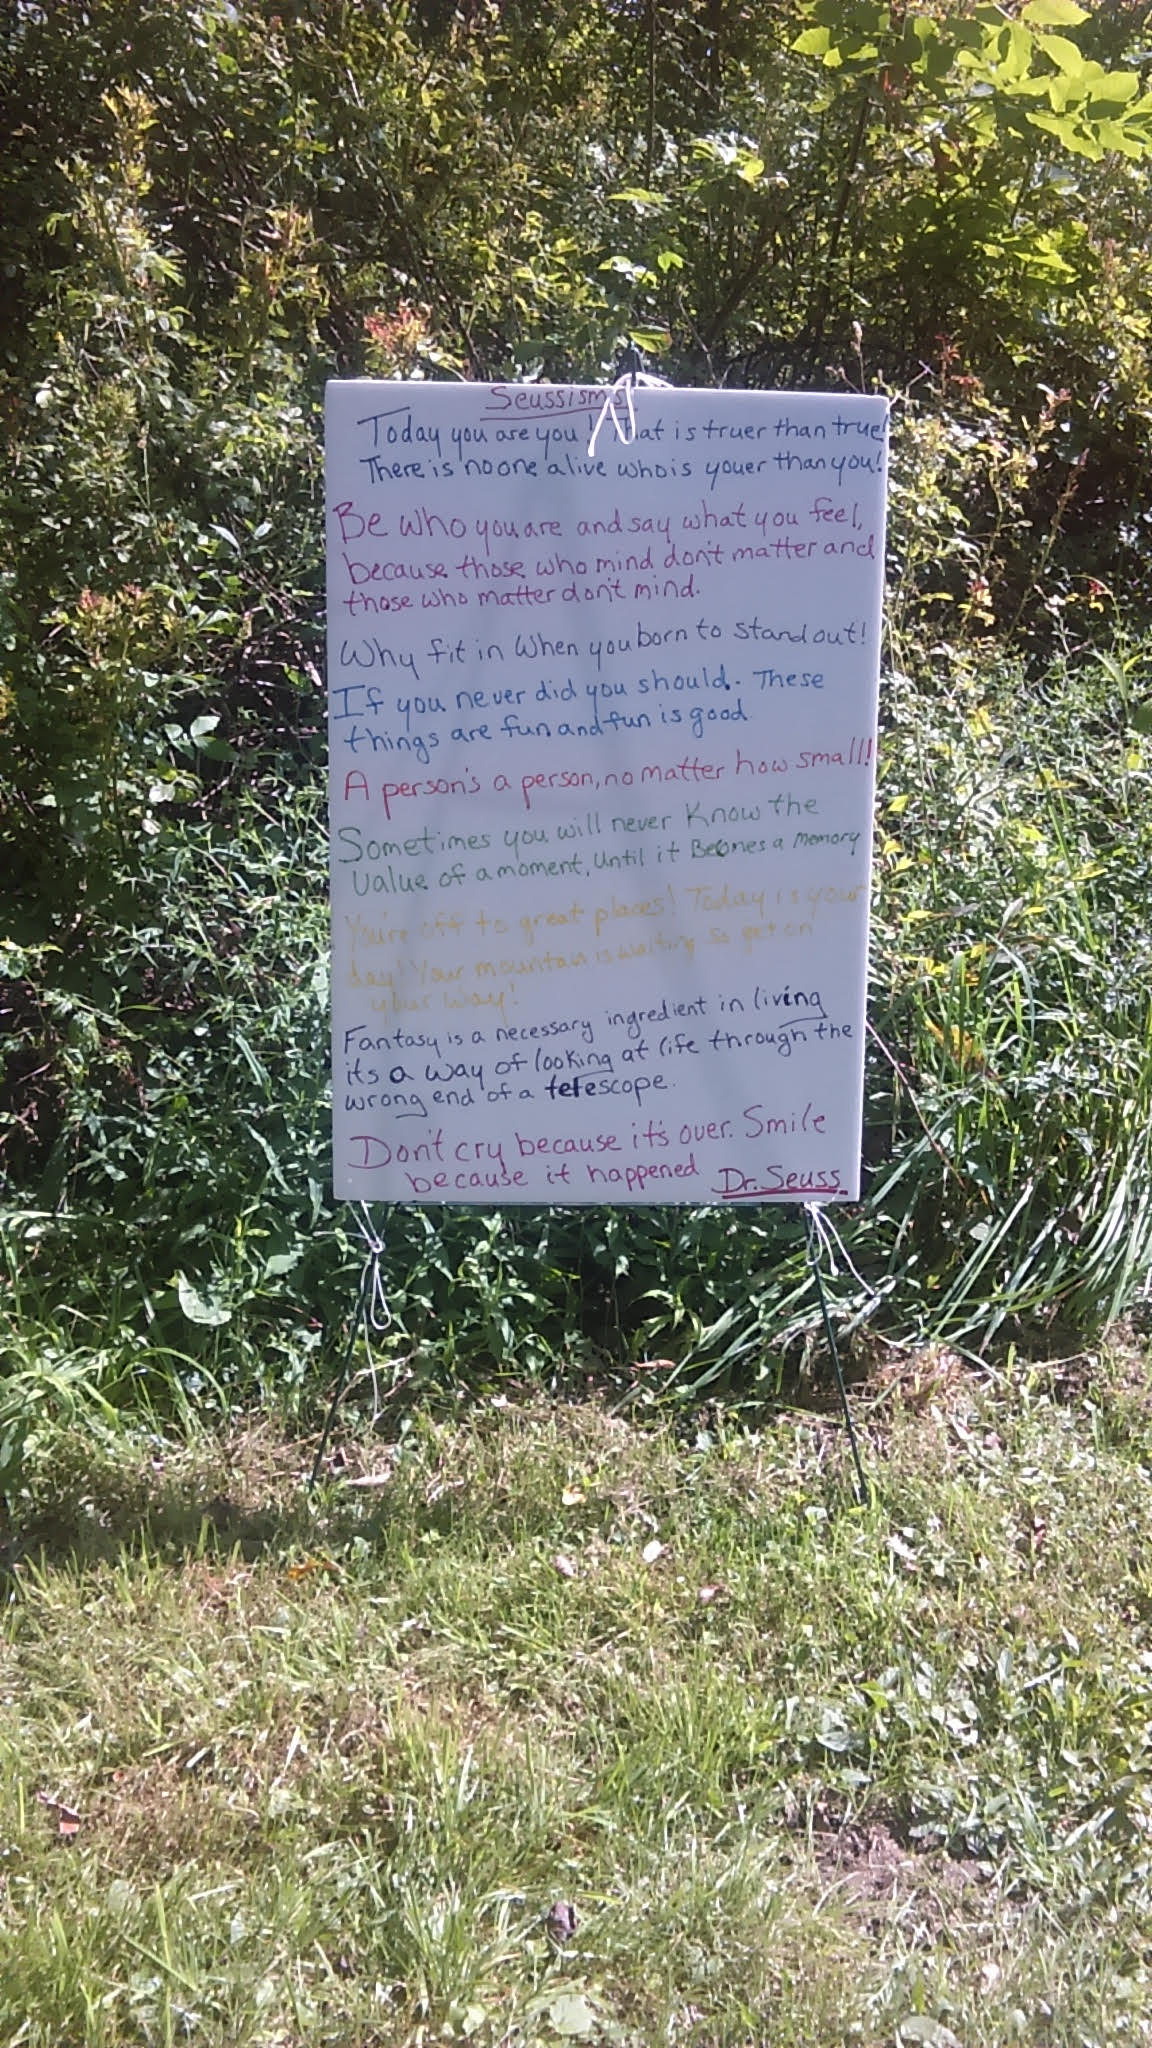 Seussisms
Today you are you! That is truer than true!
There is no one alive who is youer than you!
Be who you are and say what you feel,
because those who mind don't matter and
those who matter don't mind.
Why fit in when you born to stand out!
If you never did you should. These
things are fun and fun is good.
A person's a person, no matter how small!
Sometimes you will never Know the
Value of a moment, Until it Becomes a memory
You're off to great places! Today is your
day! Your mountain is waiting so get on
your way!
Fantasy is a necessary ingredient in living
its a way of looking at life through the
wrong end of a telescope.
Don't cry because it's over. Smile
because it happened Dr. Seuss.